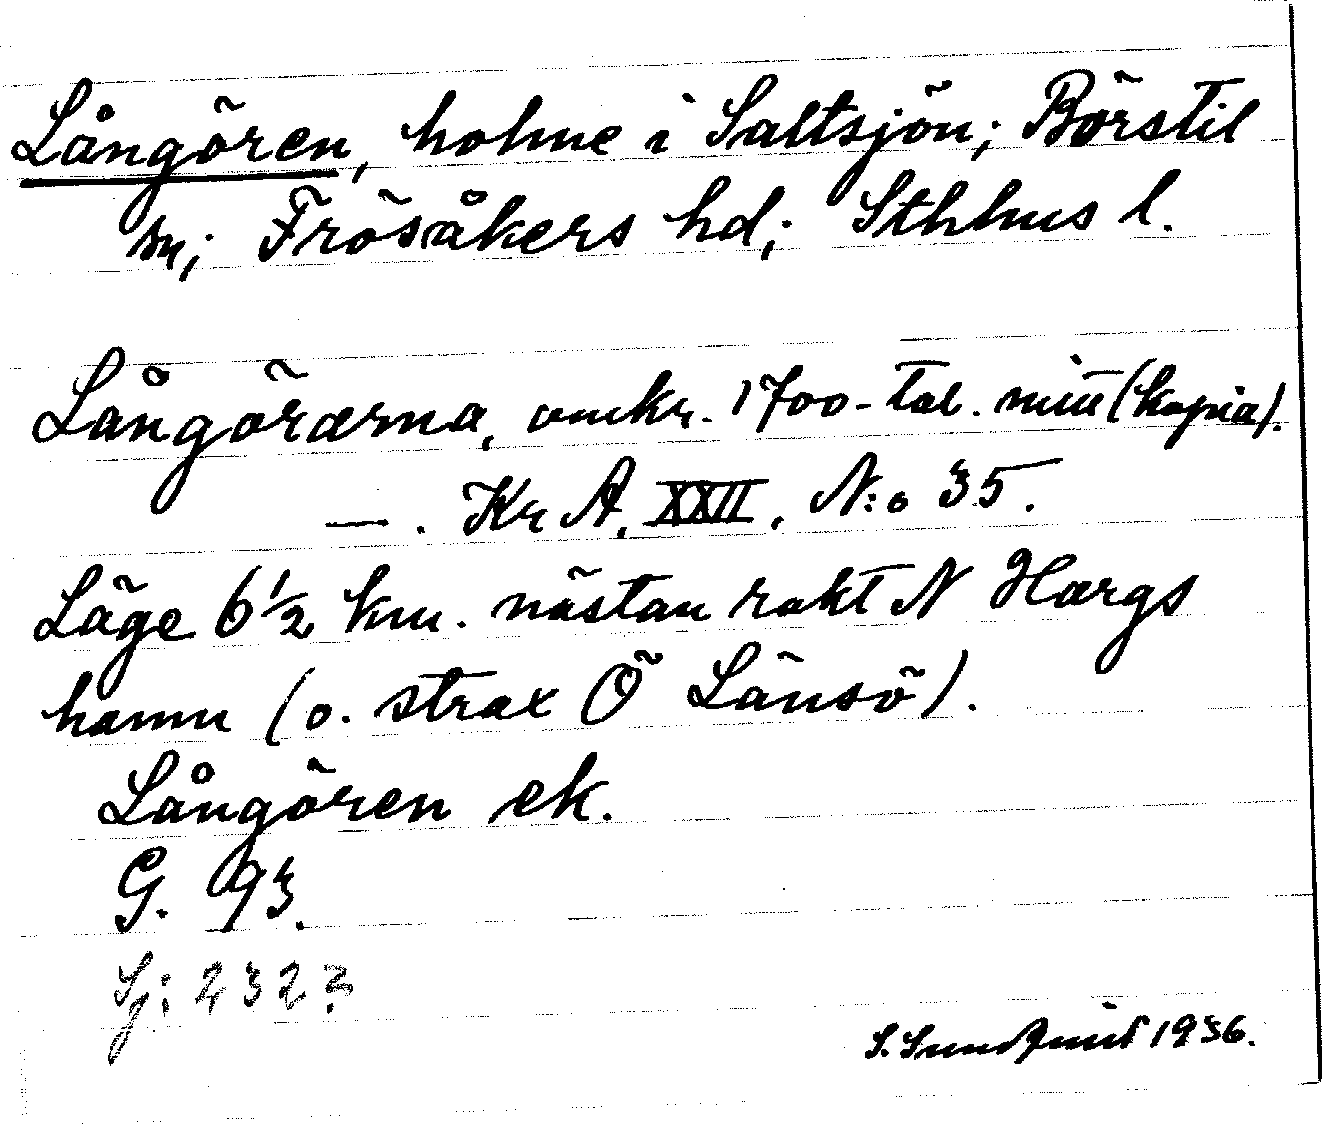 Långören, holme i Saltsjön; Börstil
sn; Frösåkers hd; Sthlms l.
Långörarna, omkr. 1700-tal. mitt (kopia).
—. Kr A. XXII. N:o 35.
Läge 6 1/2 km. nästan rakt N Hargs
hamn (o. strax Ö Länsö).
Långören ek.
G. 93.
Sj: 232
S. Sundqvist 1936.